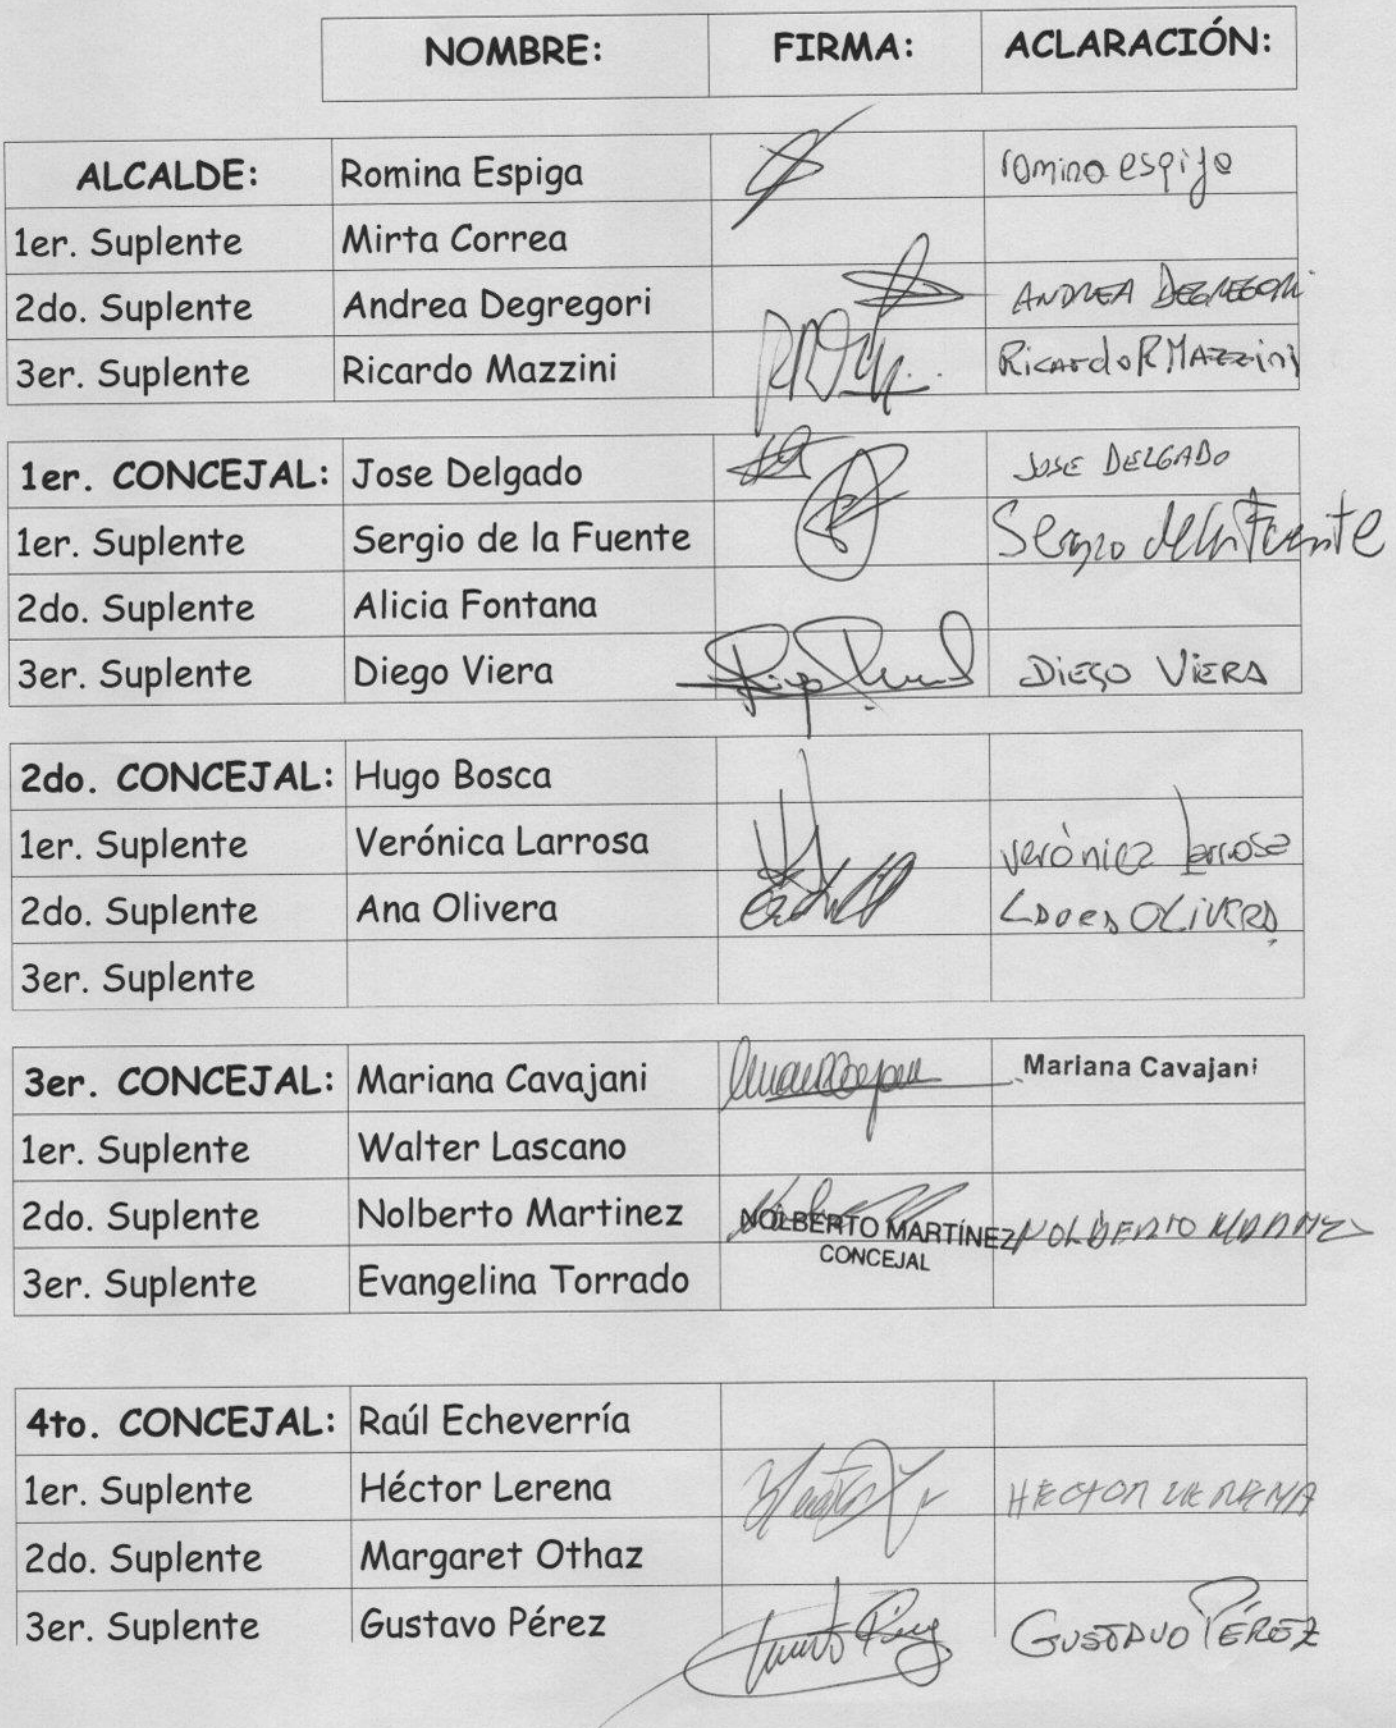 NOMBRE: FIRMA: ACLARACIÓN:
ALCALDE: Romina Espiga romina espiga
1er. Suplente Mirta Correa
2do. Suplente Andrea Degregori ANDREA DEGREGORI
3er. Suplente Ricardo Mazzini Ricardo R MAZZini
1er. CONCEJAL: Jose Delgado JOSE DELGADO
1er. Suplente Sergio de la Fuente Sergio de la Fuente
2do. Suplente Alicia Fontana
3er. Suplente Diego Viera DiEGO ViERA
2do. CONCEJAL: Hugo Bosca
1er. Suplente Verónica Larrosa Verónica Larrosa
2do. Suplente Ana Olivera OLiVERA
3er. Suplente
3er. CONCEJAL: Mariana Cavajani Mariana Cavajani
1er. Suplente Walter Lascano
2do. Suplente Nolberto Martinez NOLBERTO MARTÍNEZ NOLBERTO
CONCEJAL
3er. Suplente Evangelina Torrado
4to. CONCEJAL: Raúl Echeverría
1er. Suplente Héctor Lerena HECTOR LERENA
2do. Suplente Margaret Othaz
3er. Suplente Gustavo Pérez GUSTAVO PÉREZ